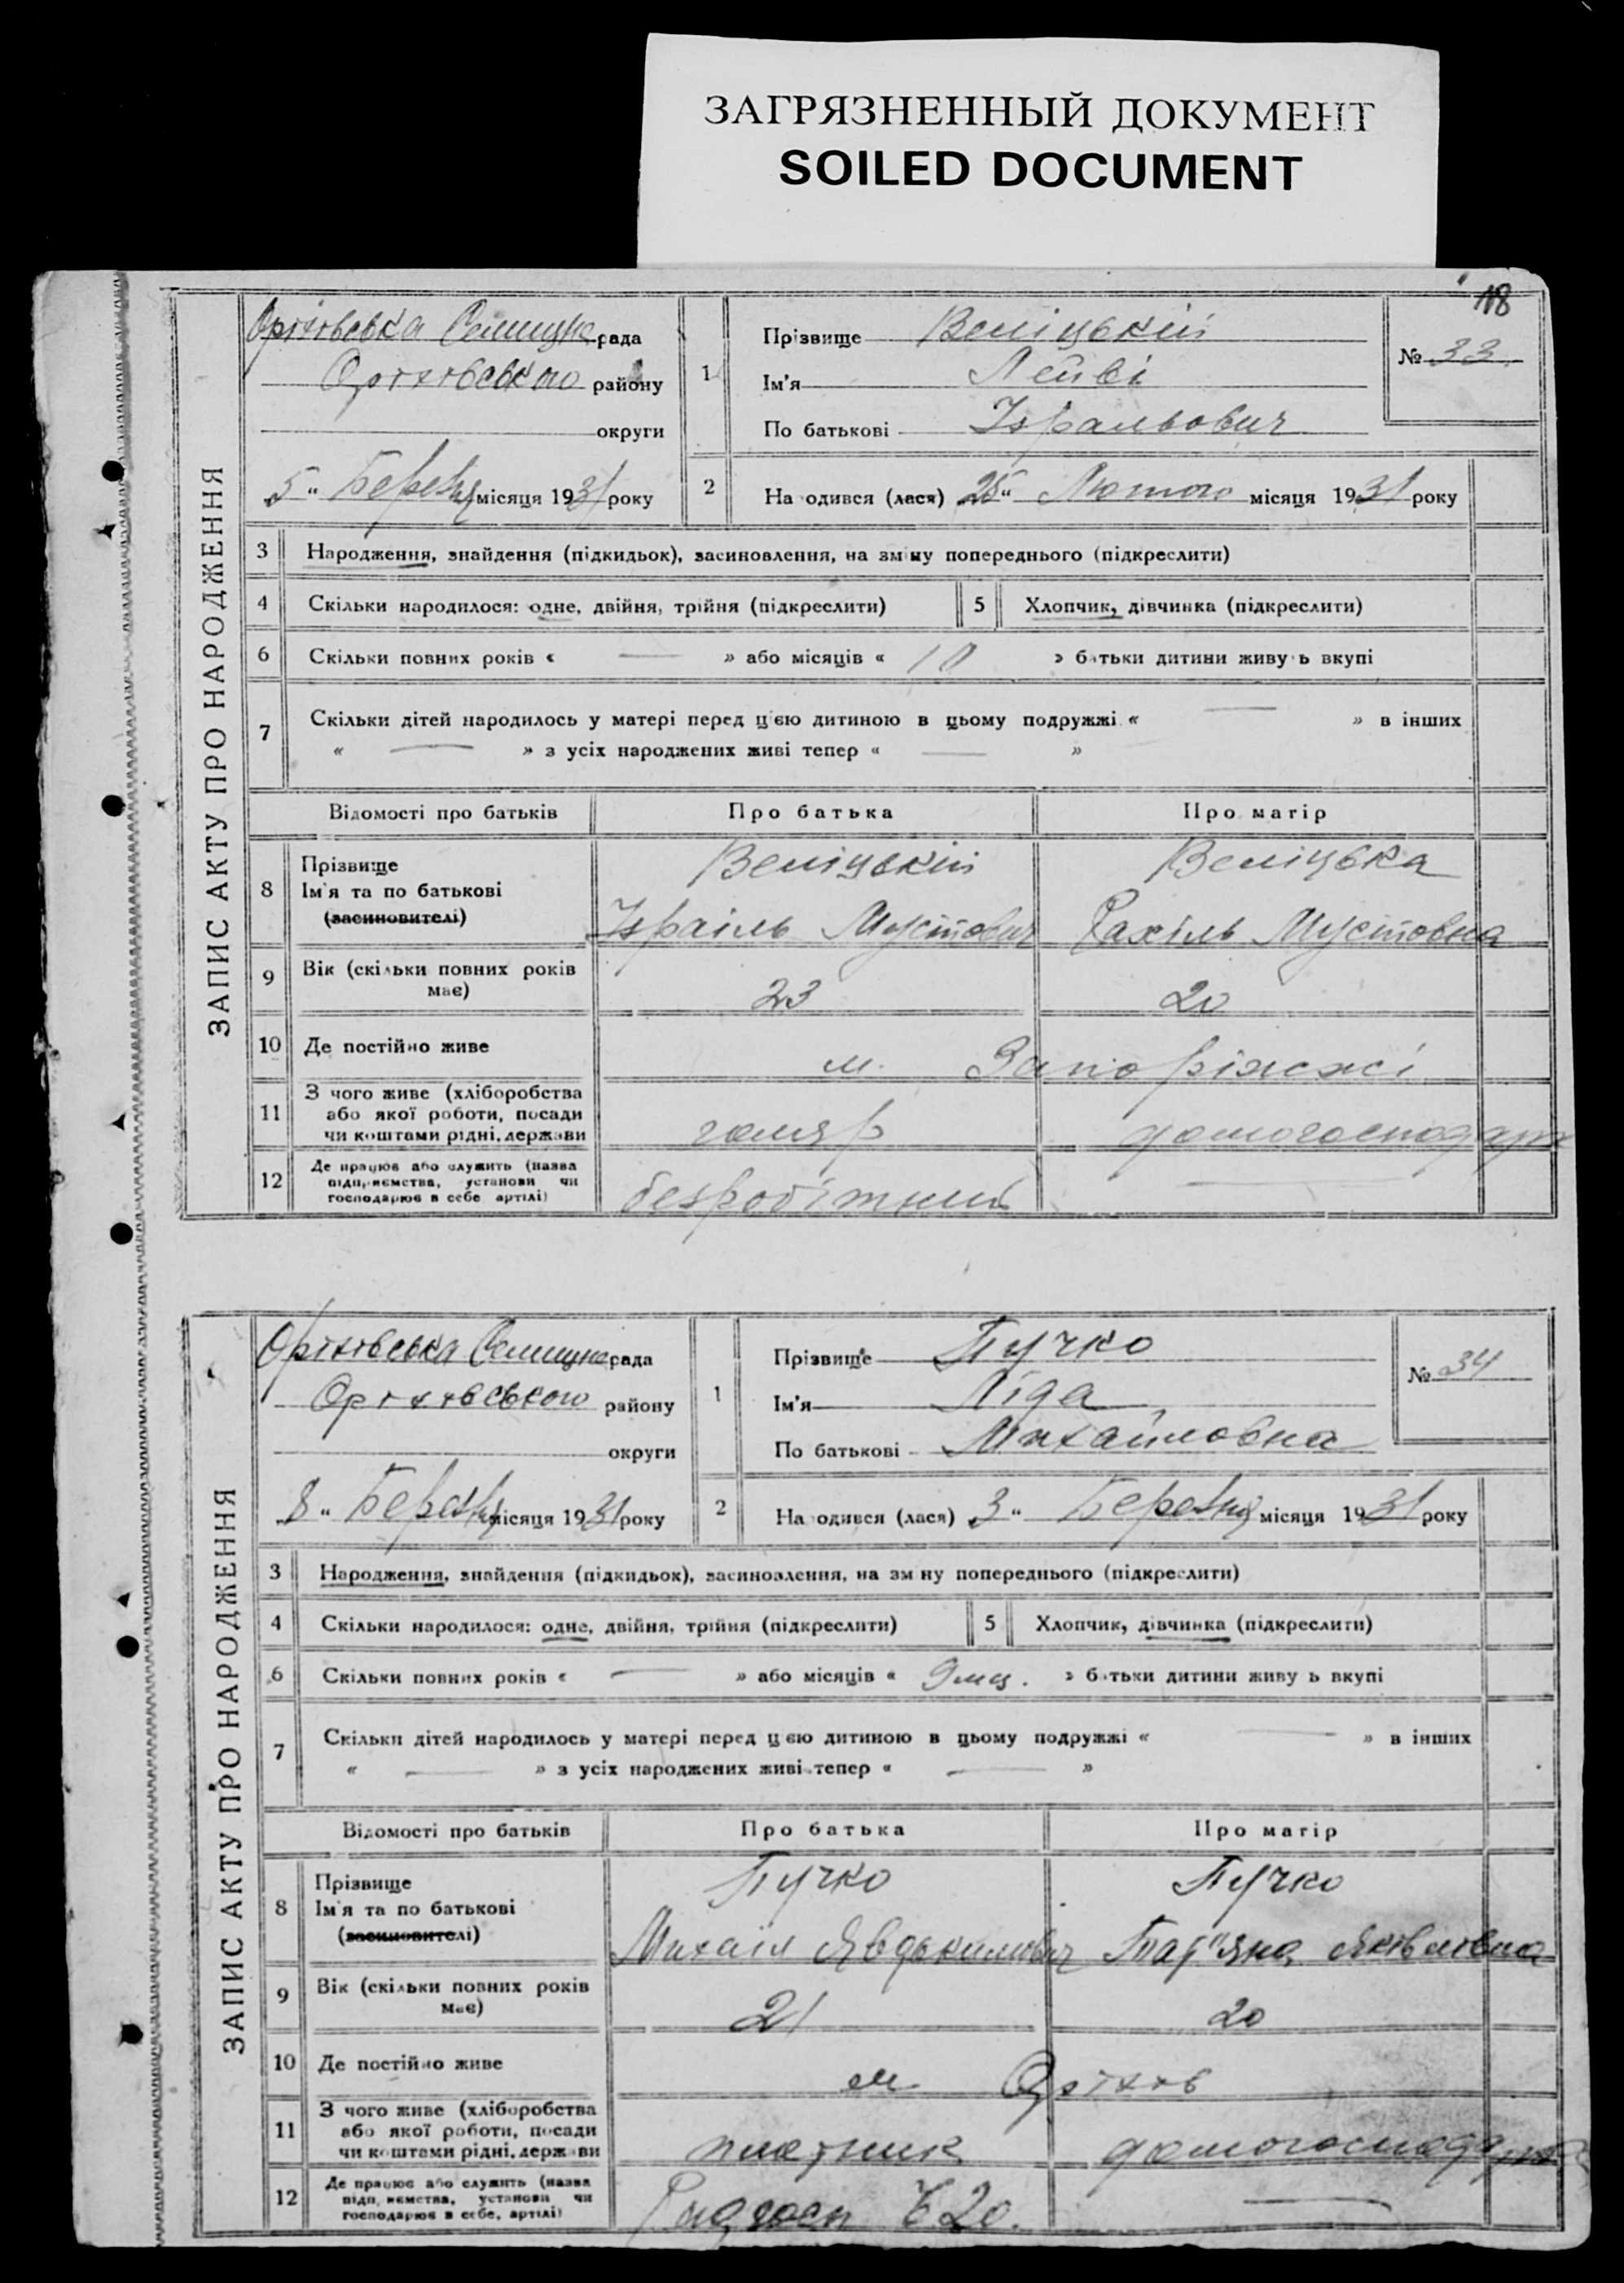 ЗАГРЯЗНЕННЫЙ ДОКУМЕНТ
SOILED DOCUMENT
118
ЗАПИС АКТУ ПРО НАРОДЖЕННЯ
Оріхівська Селищна рада
Оріхівського району
округи
„5“ Березня місяця 1931 року
1
Прізвище Веліцькій
Ім'я Лейві
По батькові Ізральович
№ 33
2
На одився (лася) 25“ Лютого місяця 1931 року
3 Народження, знайдення (підкидьок), засиновлення, на зміну попереднього (підкреслити)
4 Скільки народилося: одне, двійня, трійня (підкреслити) 5 Хлопчик, дівчинка (підкреслити)
6 Скільки повних років « — » або місяців « 10 » батьки дитини живу ь вкупі
7 Скільки дітей народилось у матері перед цією дитиною в цьому подружжі « — » в інших
« — » з усіх народжених живі тепер « — »
Відомості про батьків Про батька Про матір
8 Прізвище Веліцькій Веліцька
Ім'я та по батькові
(засиновителі) Ізраіль Рахіль
9 Вік (скільки повних років
має) 23 20
10 Де постійно живе м. Запоріжжі
11 З чого живе (хліборобства
або якої роботи, посади
чи коштами рідні, держави гомяр домогосподарк
12 Де працює або служить (назва
підприємства, установи чи
господарює в себе артілі) безробітний —
ЗАПИС АКТУ ПРО НАРОДЖЕННЯ
Оріхівська Селищна рада
Оріхівського району
округи
„8“ Березня місяця 1931 року
1
Прізвище Пучко
Ім'я Ліда
По батькові Михайловна
№ 34
2
На одився (лася) 3“ Березня місяця 1931 року
3 Народження, знайдення (підкидьок), засиновлення, на зм ну попереднього (підкреслити)
4 Скільки народилося: одне, двійня, трійня (підкреслити) 5 Хлопчик, дівчинка (підкреслити)
6 Скільки повних років « — » або місяців « 9 міц. » батьки дитини живу ь вкупі
7 Скільки дітей народилось у матері перед цією дитиною в цьому подружжі « — » в інших
« — » з усіх народжених живі тепер « — »
Відомості про батьків Про батька Про матір
8 Прізвище Пучко Пучко
Ім'я та по батькові
(засиновителі) Михаіл Явдокимович Тат"яна Яківлівна
9 Вік (скільки повних років
має) 21 20
10 Де постійно живе м Оріхів
11 З чого живе (хліборобства
або якої роботи, посади
чи коштами рідні, держави плотник домогосподарка
12 Де працює або служить (назва
підприємства, установи чи
господарює в себе, артілі) Радгосп —